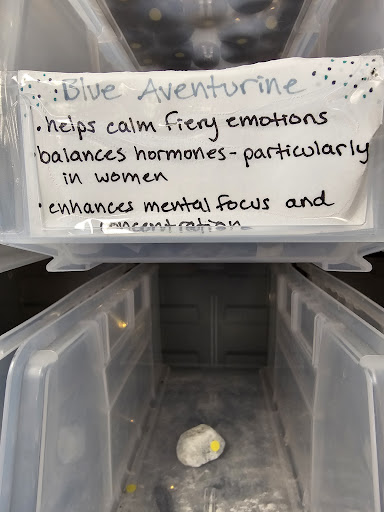 Blue Aventurine
• helps calm fiery emotions
• balances hormones - particularly
in women
• enhances mental focus and
concentration